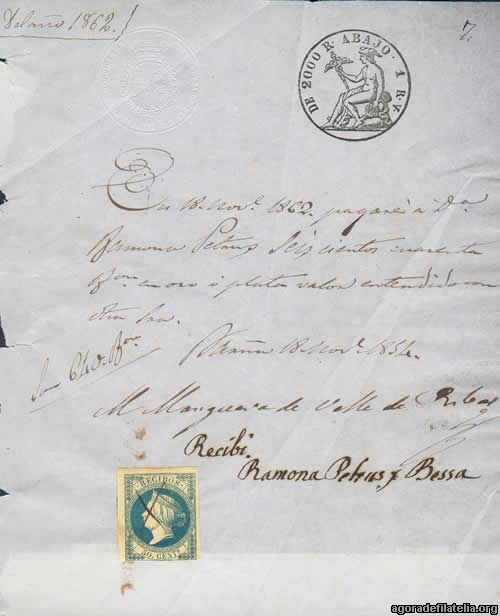 Del año 1862.
7.
DE 2000 R. ABAJO. 1 R. V.
En 18. Nov.e 1862. pagaré á D.a
Ramona Petrus Seiscientos cuarenta
en oro ó plata valor entendido con
dha Sra.
18. Nov.e
Son 640
M. Marquesa de Valle de Ribas
Recibi.
Ramona Petrus y Bessa
RECIBOS
50. CENT.s
agoradefilatelia.org